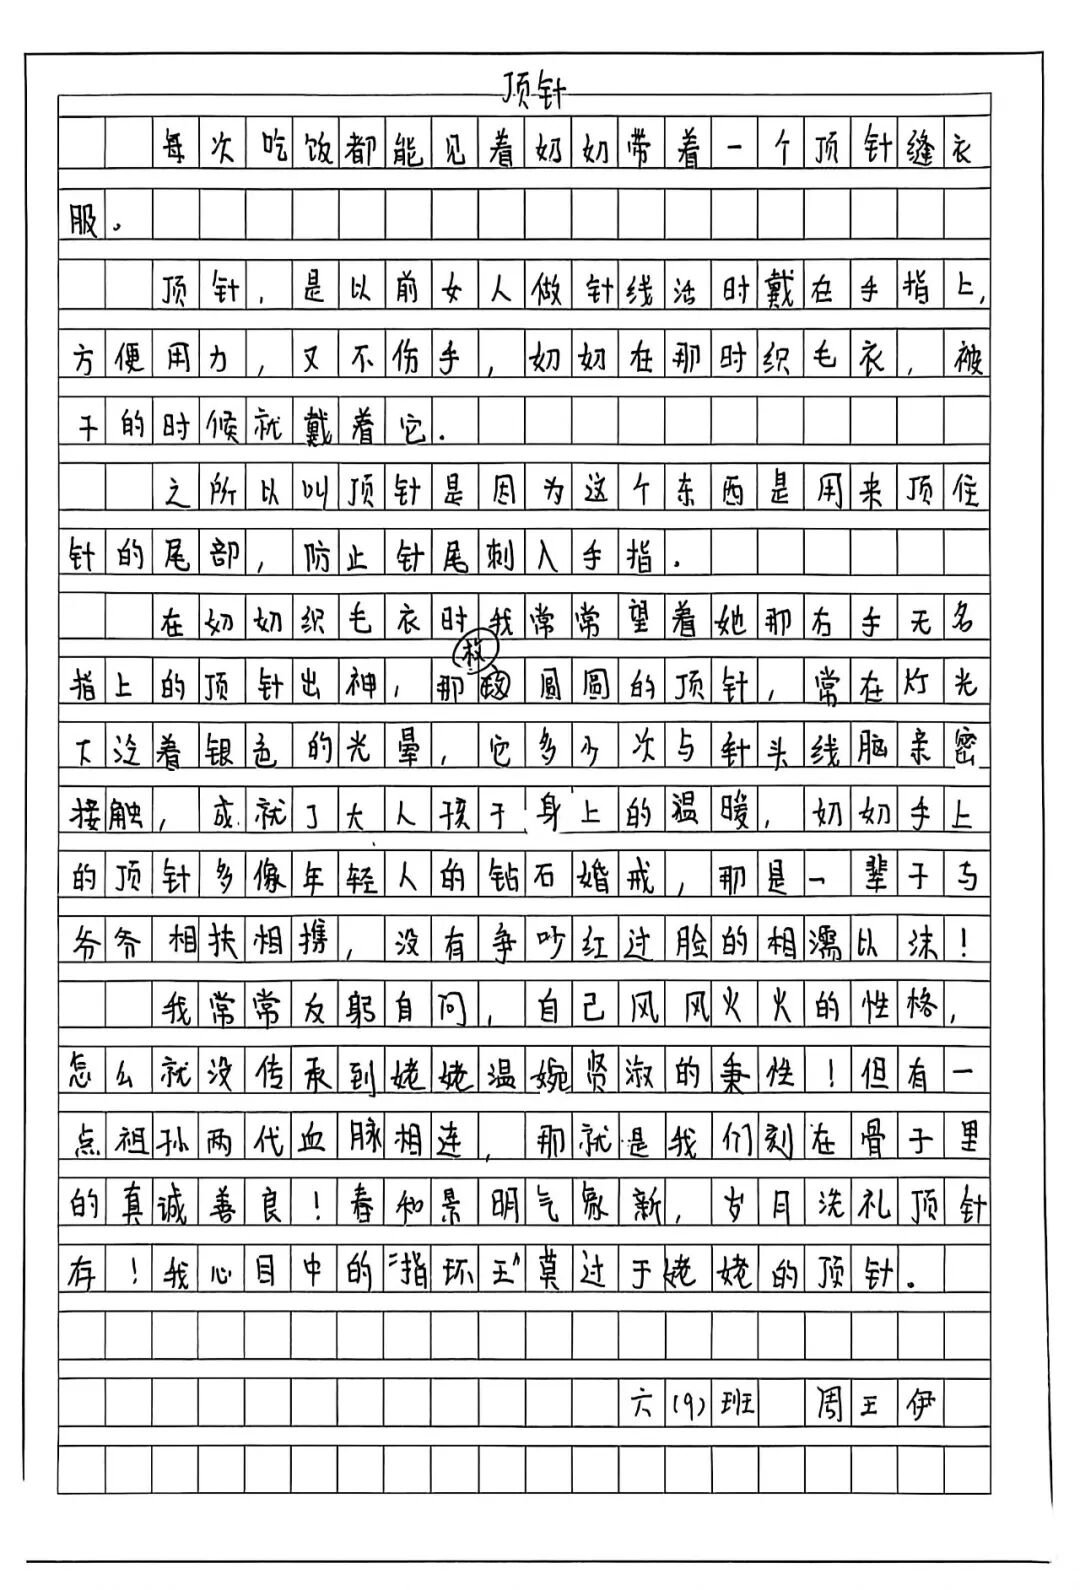 顶针
每次吃饭都能见着奶奶带着一个顶针缝衣
服。
顶针，是以前女人做针线活时戴在手指上，
方便用力，又不伤手，奶奶在那时织毛衣，被
子的时候就戴着它.
之所以叫顶针是因为这个东西是用来顶住
针的尾部，防止针尾刺入手指.
在奶奶织毛衣时我常常望着她那右手无名
指上的顶针出神，那枚圆圆的顶针，常在灯光
下泛着银色的光晕，它多少次与针头线脑亲密
接触，成就了大人孩子身上的温暖，奶奶手上
的顶针多像年轻人的钻石婚戒，那是一辈子与
爷爷相扶相携，没有争吵红过脸的相濡以沫！
我常常反躬自问，自己风风火火的性格，
怎么就没传承到姥姥温婉贤淑的秉性！但有一
点祖孙两代血脉相连，那就是我们刻在骨子里
的真诚善良！春和景明气象新，岁月洗礼顶针
存！我心目中的“指环王”莫过于姥姥的顶针。
六(9)班 周王伊